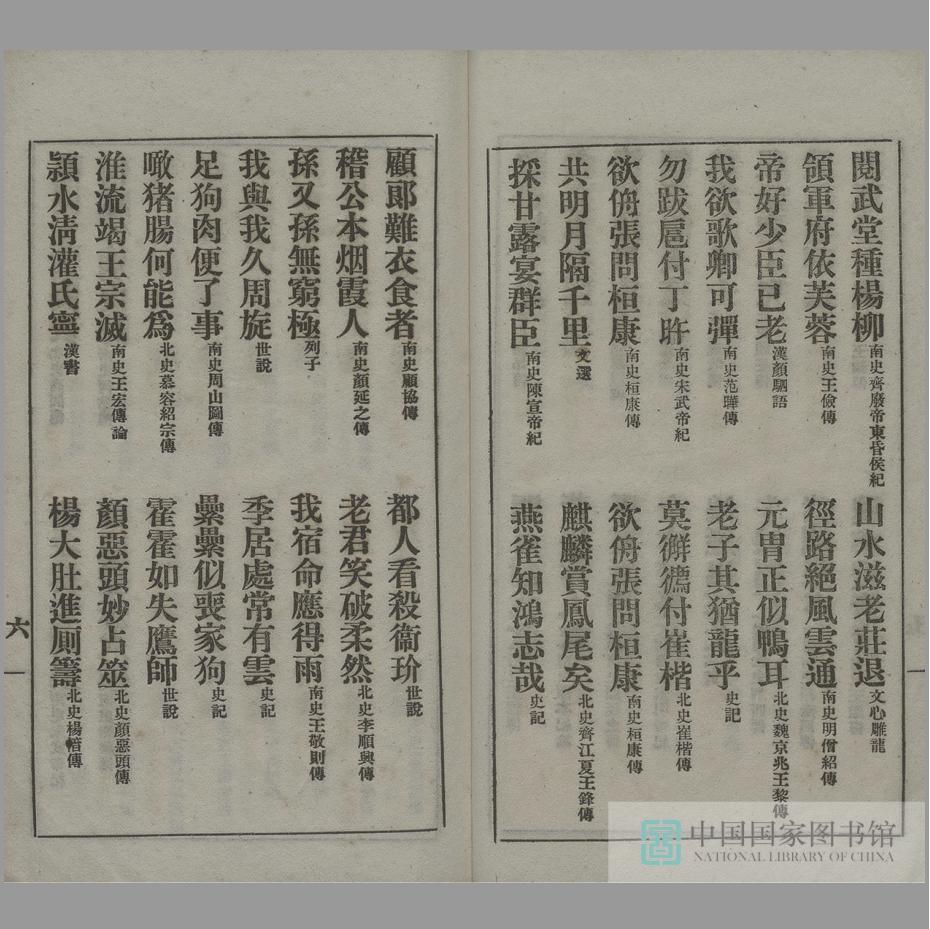 閱武堂種楊柳 南史齊廢帝東昏侯紀
山水滋老莊退 文心雕龍
領軍府依芙蓉 南史王儉傳
徑路絕風雲通 南史明僧紹傳
帝好少臣已老 漢顏駟語
元胄正似鴨耳 北史魏京兆王黎傳
我欲歌卿可彈 南史范曄傳
老子其猶龍乎 史記
勿跋扈付丁旿 南史宋武帝紀
莫獬㺢付崔楷 北史崔楷傳
欲侜張問桓康 南史桓康傳
欲侜張問桓康 南史桓康傳
共明月隔千里 文選
麒麟賞鳳尾矣 北史齊江夏王鋒傳
採甘露宴群臣 南史陳宣帝紀
燕雀知鴻志哉 史記
顧郎難衣食者 南史顧協傳
都人看殺衞玠 世說
稽公本烟霞人 南史顏延之傳
老君笑破柔然 北史李順興傳
孫又孫無窮極 列子
我宿命應得雨 南史王敬則傳
我與我久周旋 世說
季居處常有雲 史記
足狗肉便了事 南史周山圖傳
纍纍似喪家狗 史記
噉猪腸何能爲 北史慕容紹宗傳
霍霍如失鷹師 世說
淮流竭王宗滅 南史王宏傳論
顏惡頭妙占筮 北史顏惡頭傳
潁水淸灌氏寧 漢書
楊大肚進厠籌 北史楊愔傳
六
中国国家图书馆
NATIONAL LIBRARY OF CHINA